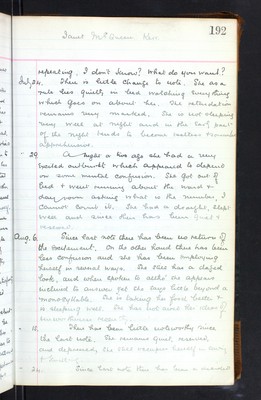 192
Janet McQueen
repeating, I don't know? What do you want?
July 24. There is little change to note. She as a
rule lies quietly in bed watching everything
which goes on about her. The retardation
remains very marked. She is not sleeping
very well at night and in the early part
of the night tends to become restless &
apprehensive.
29 A night or two ago she had a very
excited outburst which appeared to depend
on some mental confusion. She got out of
bed & went running about the ward &
day room asking what is the number, I
cannot count it. She had a draught, slept
well and since then has been quiet &
Aug. 6. Since last note there has been no return of
the excitement. On the other hand there has been
less confusion and she has been employing
herself in several ways. She still has a dazed
look, and when spoken to altho' she appears
inclined to answer yet she says little beyond a
monosyllable. She is taking her food better &
is sleeping well. She has not aired her ideas of
unworthiness
There has been little noteworthy since
the last note. She remains quiet, reserved,
and depressed, she still occupies herself in
24. Since last note there has been a